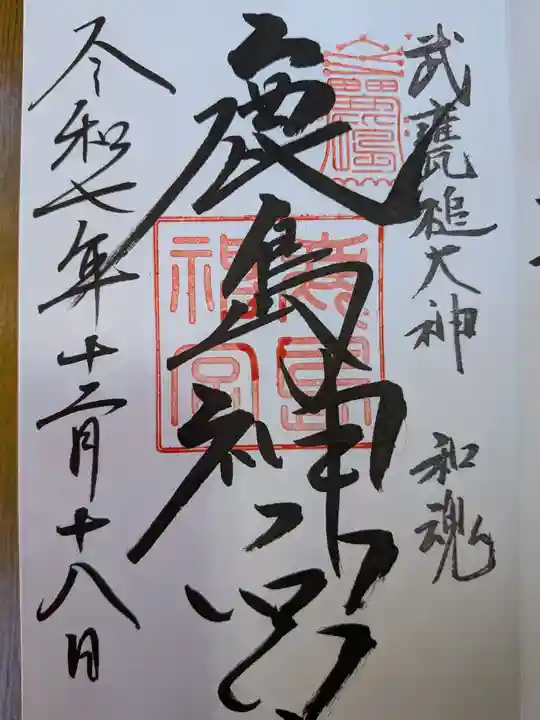 武甕槌大神 和魂
鹿島神宮
鹿島神宮
令和七年十二月十八日